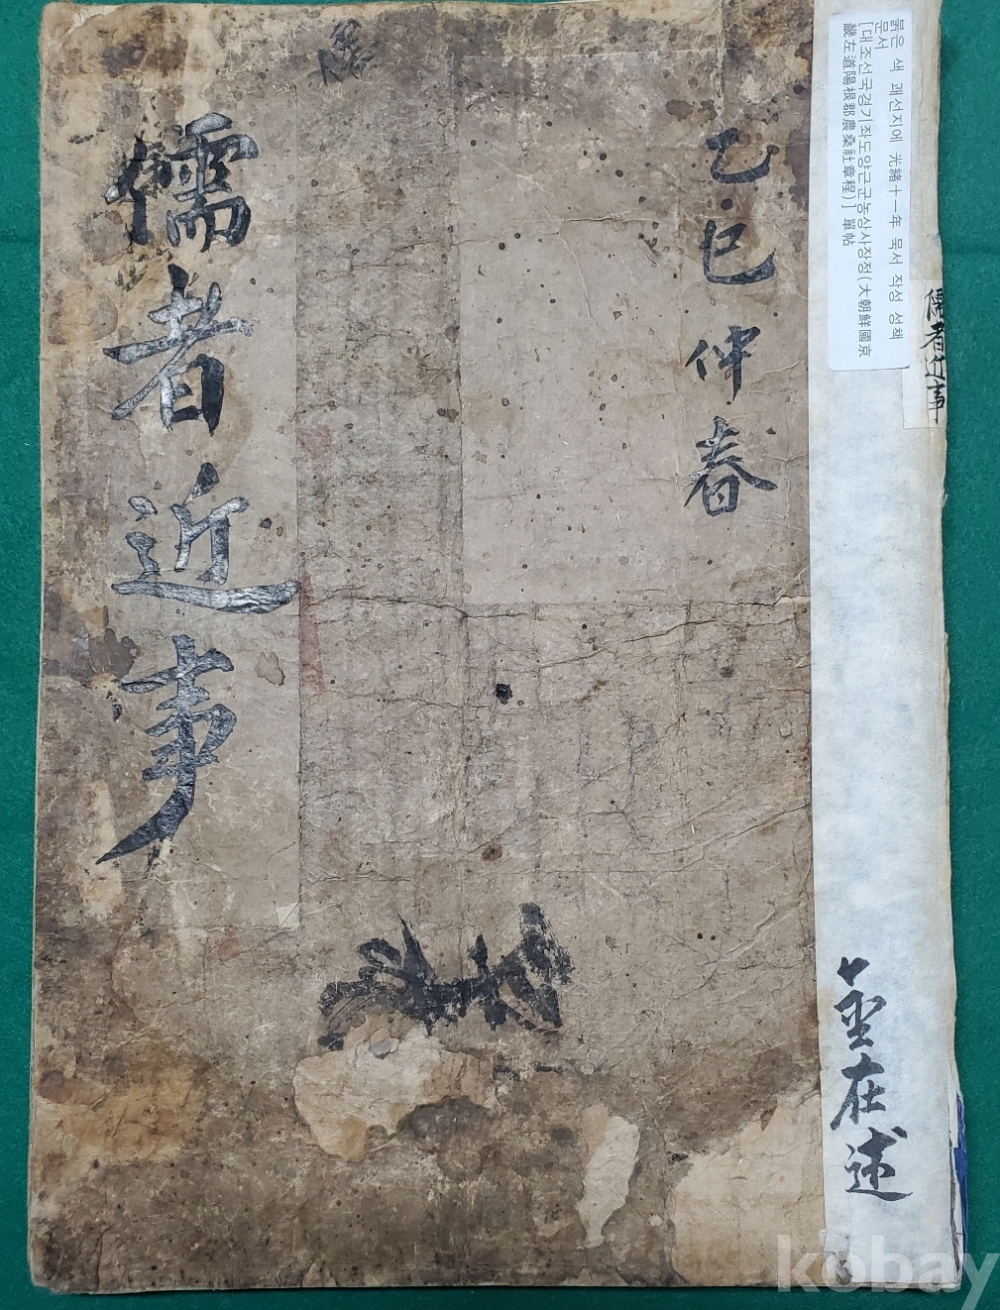 붉은 색 괘선지에 光緖十一年 묵서 작성 성책
문서
[대조선국경기좌도양근군농상사장정(大朝鮮國京
畿左道陽根郡農桑社章程)] 單帖
儒者近事
乙巳仲春
儒者近事
金在述
kobay